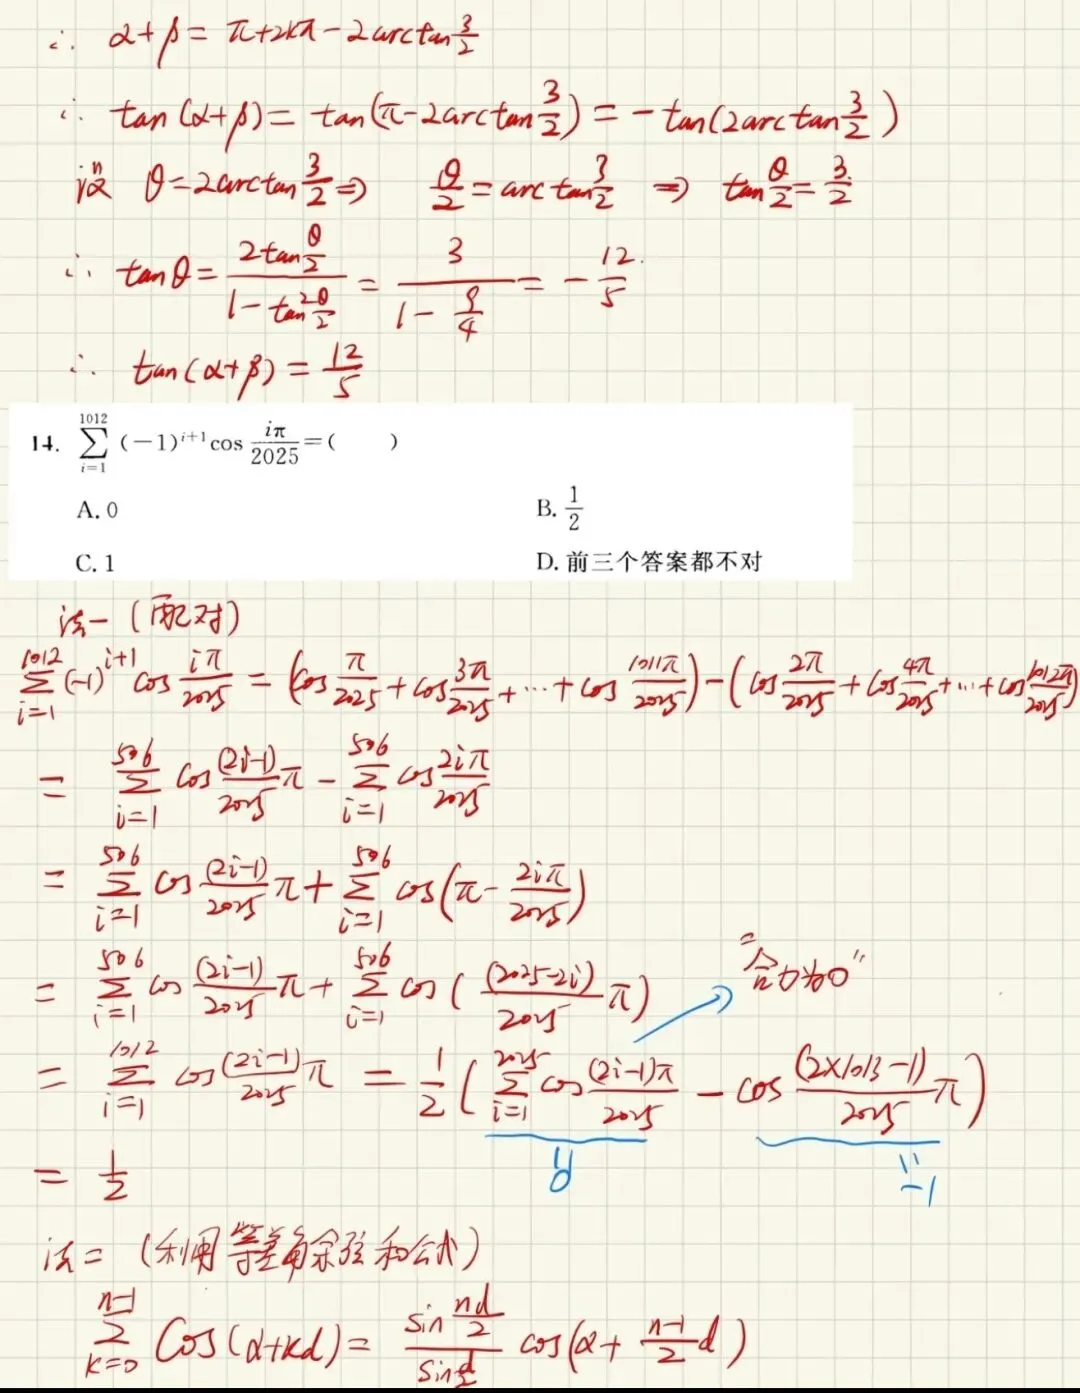 ∴ α+β = π+2kπ-2arctan 3/2
∴ tan(α+β) = tan(π-2arctan 3/2) = -tan(2arctan 3/2)
设 θ=2arctan 3/2 ⇒ θ/2 = arctan 3/2 ⇒ tan θ/2 = 3/2
∴ tanθ = (2tan θ/2)/(1-tan² θ/2) = 3/(1-9/4) = -12/5
∴ tan(α+β) = 12/5
14. ∑_{i=1}^{1012} (-1)^{i+1} cos iπ/2025 = (  )
A. 0
B. 1/2
C. 1
D. 前三个答案都不对
法一 (配对)
∑_{i=1}^{1012} (-1)^{i+1} cos iπ/2025 = (cos π/2025 + cos 3π/2025 + ⋯ + cos 1011π/2025) - (cos 2π/2025 + cos 4π/2025 + ⋯ + cos 1012π/2025)
= ∑_{i=1}^{506} cos (2i-1)/2025 π - ∑_{i=1}^{506} cos 2iπ/2025
= ∑_{i=1}^{506} cos (2i-1)/2025 π + ∑_{i=1}^{506} cos(π - 2iπ/2025)
= ∑_{i=1}^{506} cos (2i-1)/2025 π + ∑_{i=1}^{506} cos( (2025-2i)/2025 π)
"合力为0"
= ∑_{i=1}^{1012} cos (2i-1)/2025 π = 1/2 ( ∑_{i=1}^{2025} cos (2i-1)π/2025 - cos (2×1013-1)/2025 π)
= 1/2
0
-1
法二 (利用等差角余弦和公式)
∑_{k=0}^{n-1} cos(α+kd) = (sin nd/2)/(sin d/2) cos(α + (n-1)/2 d)